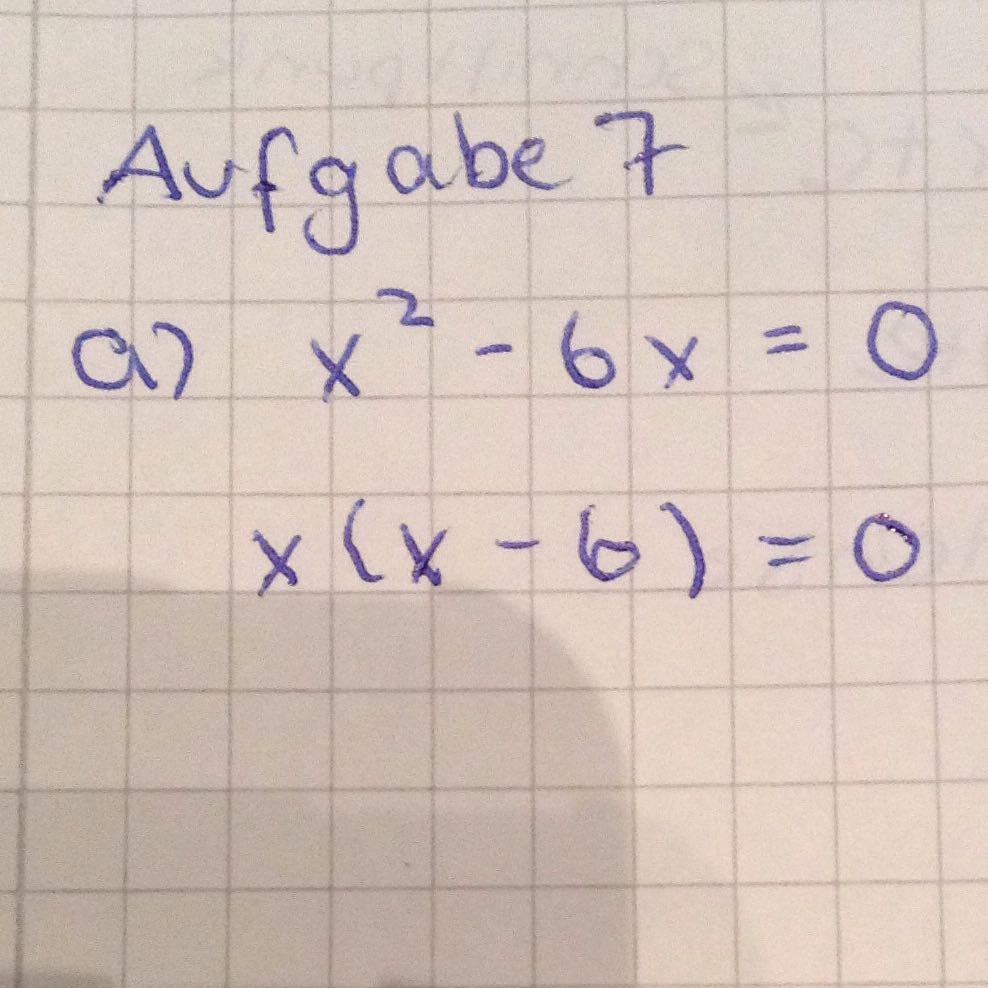 Aufgabe 7
a) x² - 6x = 0
x(x - 6) = 0